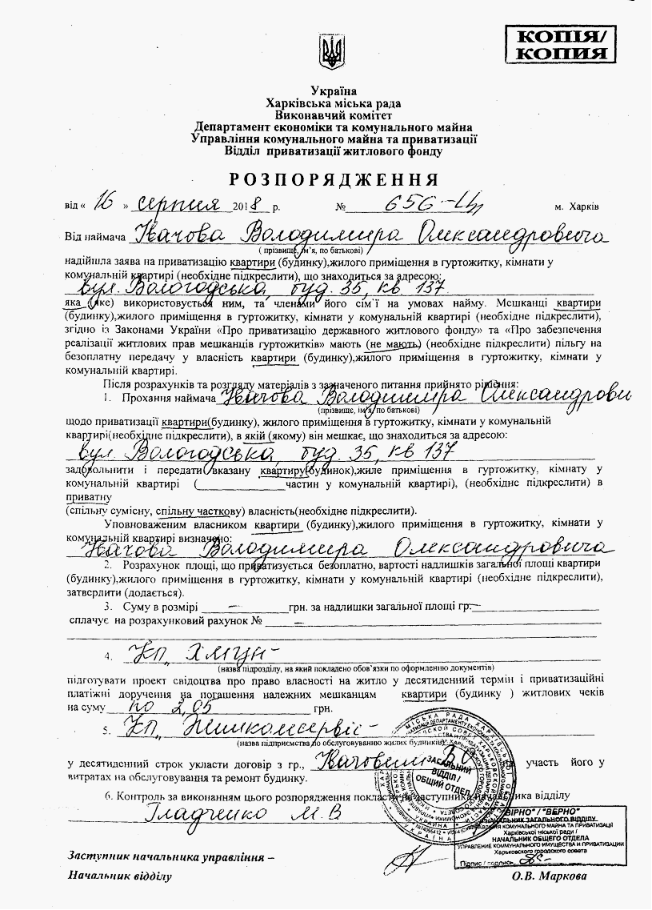 КОПІЯ/
КОПИЯ
Україна
Харківська міська рада
Виконавчий комітет
Департамент економіки та комунального майна
Управління комунального майна та приватизації
Відділ приватизації житлового фонду
РОЗПОРЯДЖЕННЯ
від « 16 » серпня 2018 р. № 656- м. Харків
Від наймача Качова Володимира Олександровича
( прізвище, ім’я, по батькові)
надійшла заява на приватизацію квартири (будинку),жилого приміщення в гуртожитку, кімнати у
комунальній квартирі (необхідне підкреслити), що знаходиться за адресою:
вул. Вологодська, буд. 35, кв 137
яка (яке) використовується ним, та членами його сім’ї на умовах найму. Мешканці квартири
(будинку),жилого приміщення в гуртожитку, кімнати у комунальній квартирі (необхідне підкреслити),
згідно із Законами України «Про приватизацію державного житлового фонду» та «Про забезпечення
реалізації житлових прав мешканців гуртожитків» мають (не мають) (необхідне підкреслити) пільгу на
безоплатну передачу у власність квартири (будинку),жилого приміщення в гуртожитку, кімнати у
комунальній квартирі.
Після розрахунків та розгляду матеріалів з зазначеного питання прийнято рішення:
1. Прохання наймача Качова Володимира Олександрови
(прізвище, ім’я, по батькові)
щодо приватизації квартири(будинку), жилого приміщення в гуртожитку, кімнати у комунальній
квартирі(необхідне підкреслити), в якій (якому) він мешкає, що знаходиться за адресою:
вул. Вологодська, буд. 35, кв 137
задовольнити і передати вказану квартиру(будинок),жиле приміщення в гуртожитку, кімнату у
комунальній квартирі (____________ частин у комунальній квартирі), (необхідне підкреслити) в
приватну
(спільну сумісну, спільну часткову) власність(необхідне підкреслити).
Уповноваженим власником квартири (будинку),жилого приміщення в гуртожитку, кімнати у
комунальній квартирі визначено:
Качова Володимира Олександровича
2. Розрахунок площі, що приватизується безоплатно, вартості надлишків загальної площі квартири
(будинку),жилого приміщення в гуртожитку, кімнати у комунальній квартирі (необхідне підкреслити),
затвердити (додається).
3. Суму в розмірі – грн. за надлишки загальної площі гр. –
сплачує на розрахунковий рахунок № –
4. КП „ -
(назва підрозділу, на який покладено обов’язки по оформленню документів)
підготувати проект свідоцтва про право власності на житло у десятиденний термін і приватизаційні
платіжні доручення на погашення належних мешканцям квартири (будинку ) житлових чеків
на суму по 2,05 грн.
5. КП „ Жилкомсервіс -
(назва підприємства по обслуговуванню жилих будинку)
у десятиденний строк укласти договір з гр., Качовим В.О участь його у
витратах на обслуговування та ремонт будинку.
ЗАГАЛЬНИЙ
ВІДДІЛ /
ОБЩИЙ ОТДЕЛ
6. Контроль за виконанням цього розпорядження покласти на заступника начальника відділу
Гладченко М.В
"ВІРНО" / "ВЕРНО"
НАЧАЛЬНИК ЗАГАЛЬНОГО ВІДДІЛУ
УПРАВЛІННЯ КОМУНАЛЬНОГО МАЙНА ТА ПРИВАТИЗАЦІЇ
Харківської міської ради /
НАЧАЛЬНИК ОБЩЕГО ОТДЕЛА
УПРАВЛЕНИЕ КОММУНАЛЬНОГО ИМУЩЕСТВА И ПРИВАТИЗАЦИИ
Харьковского городского совета
Підпис / подпись
Заступник начальника управління –
Начальник відділу О.В. Маркова